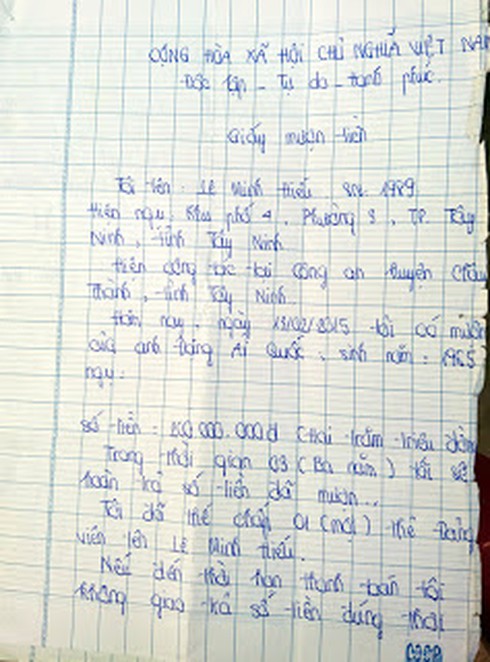 CỘNG HÒA XÃ HỘI CHỦ NGHĨA VIỆT NAM
Độc lập - Tự do - Hạnh phúc.
Giấy mượn tiền
Tôi tên: Lê Minh Hiếu, SN: 1989
Hiện ngụ: Khu phố 4, Phường 3, TP. Tây
Ninh, tỉnh Tây Ninh.
Hiện công tác tại Công an huyện Châu
Thành, tỉnh Tây Ninh.
Hôm nay, ngày 13/02/2015 tôi có mượn
của anh Đặng Ái Quốc, sinh năm: 1965
ngụ:
số tiền: 000.000đ (Hai trăm triệu đồng
Trong thời gian 03 (Ba năm) tôi sẽ
hoàn trả số tiền đã mượn...
Tôi đã thế chấp 01 (một) thẻ Đảng
viên tên Lê Minh Hiếu.
Nếu đến thời hạn thanh toán tôi
không giao trả số tiền đúng thời